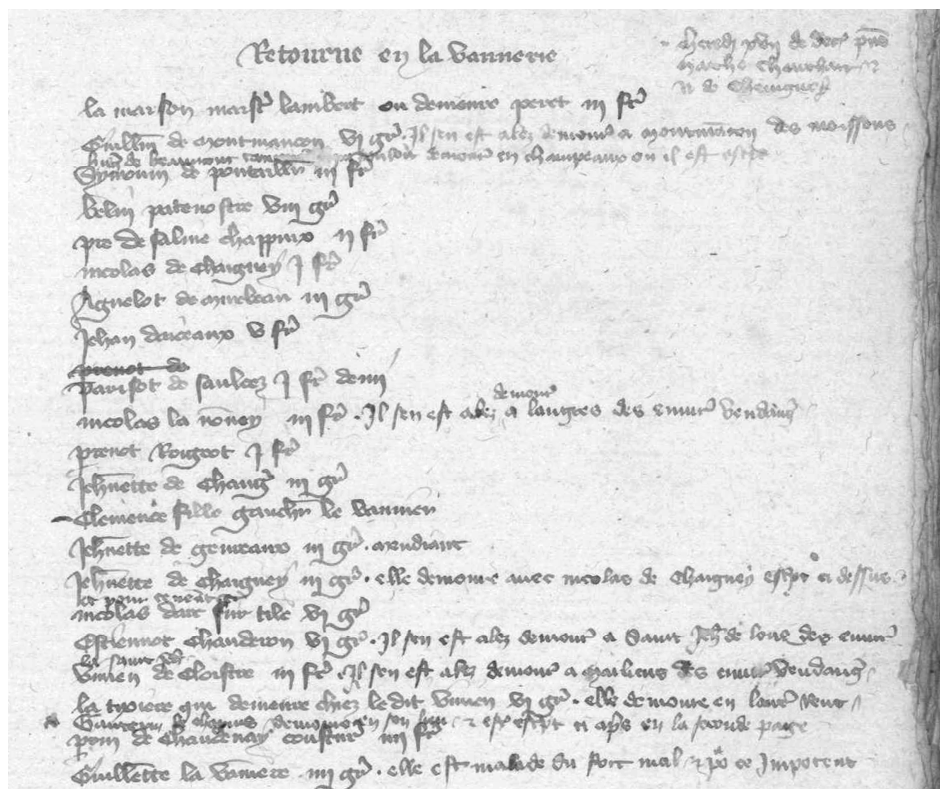 Retourne en la vannerie
la maison maistr lambert ou demoure peret iij fr
Guillm de montmancon vi gr. Il sen est alez demour a montmancon des moissons
hug de beaumont demour en champeaux ou il est escpt
Symonin de pontaillr iij fr
belin patenostre viij gr
pre de salme chappuix ij fr
nicolas de Chaigney j fr
Aguelot de mirebeau iij gr
Jehan darceaux v fr
prenot de
parisot de saulcez j fr demi
nicolas la noney iij fr. Il sen est alez demour a langres des enuir vendang
prenot Rougeot j fr
Jehnette de Chang iij gr
Clemence fille gauchr le vannier
Jehnette de geureaux iij gr. mendiant
Jehnette de Chaigney iij gr. elle demoure auec nicolas de Chaigney escpt ci dessus
nicolas darc sur tille vi gr
Estiennot Chauderon vi gr. Il sen est alez demour a Saint Jeh de lone des enuir
Viuien de Cloistre iij fr. Il sen est alez demour a mailleus des enuir vendang
la tixiere qui demoure chiez ledit viuien vi gr. elle demoure en
demoure en son lieu et est escpt ci aps en la seconde page
prin de Chaudenay coustur iiij fr
Guillette la vaniere iiij gr. elle est malade du fort mal et po ce Impotent